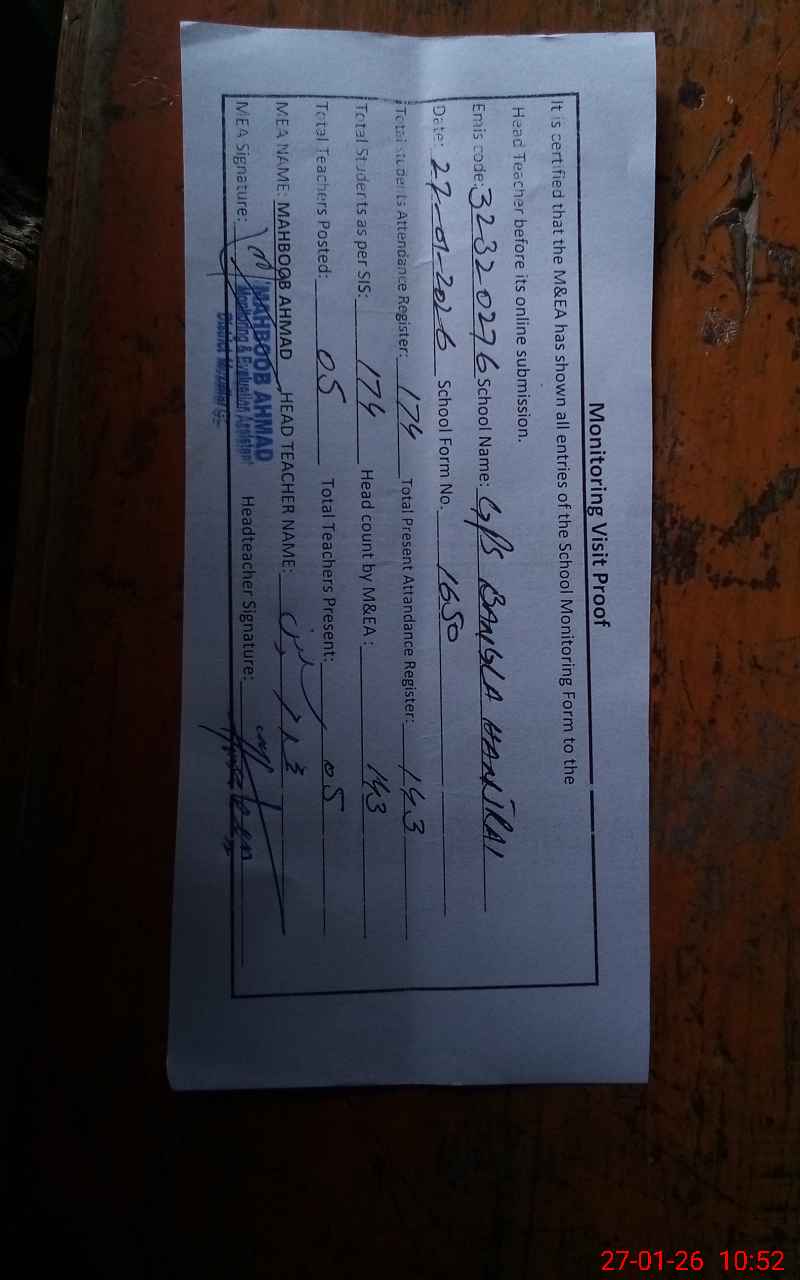 Monitoring Visit Proof
It is certified that the M&EA has shown all entries of the School Monitoring Form to the
Head Teacher before its online submission.
Emis code: 32320276 School Name: G/PS BANGLA HANJRAI
Date: 27-01-2026 School Form No. 1650
Total students Attendance Register: 174 Total Present Attandance Register: 143
Total Students as per SIS: 174 Head count by M&EA : 143
Total Teachers Posted: 05 Total Teachers Present: 05
MEA NAME: MAHBOOB AHMAD HEAD TEACHER NAME:
MEA Signature: Headteacher Signature:
MAHBOOB AHMAD
Monitoring & Evaluation Assistant
District Muzaffar
27-01-26 10:52